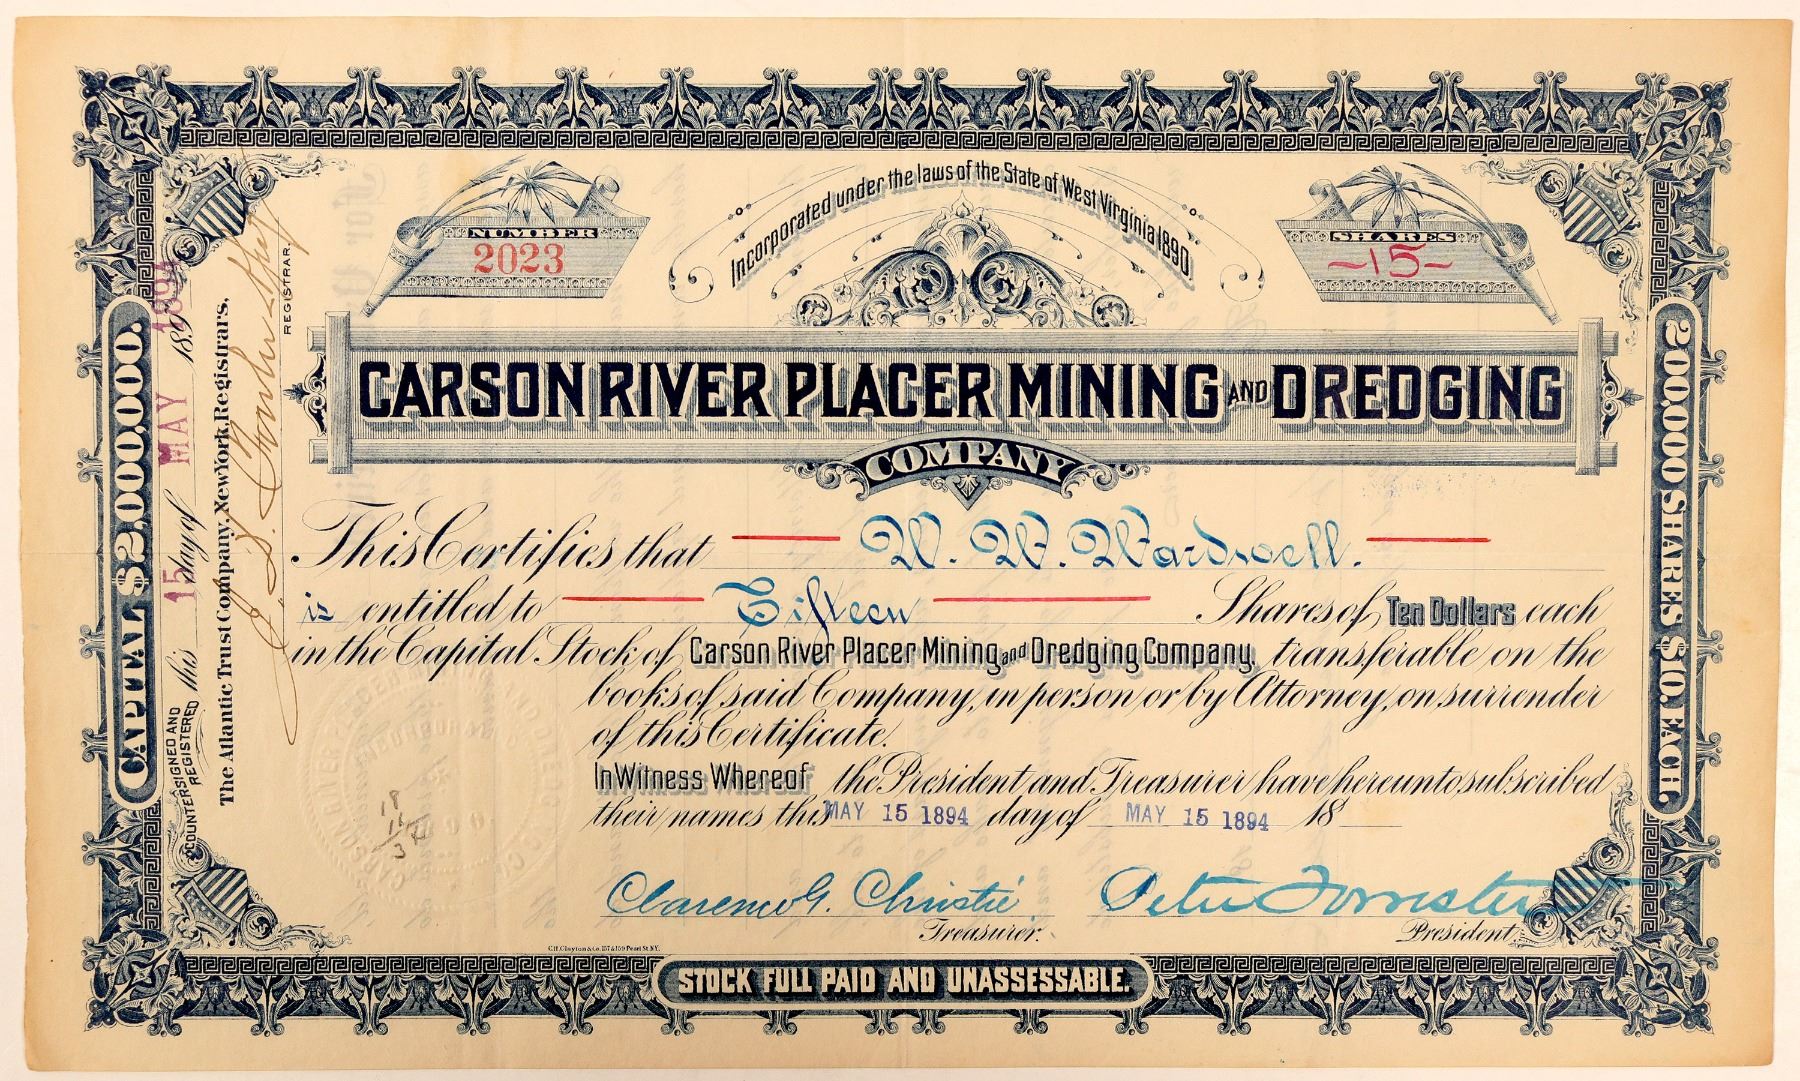 Incorporated under the laws of the State of West Virginia 1890.
NUMBER
2023
SHARES
~15~
CARSON RIVER PLACER MINING AND DREDGING
COMPANY
This Certifies that W. W. Wardwell.
is entitled to Fifteen Shares of Ten Dollars each
in the Capital Stock of Carson River Placer Mining and Dredging Company, transferable on the
books of said Company, in person or by Attorney, on surrender
of this Certificate.
In Witness Whereof the President and Treasurer have hereunto subscribed
their names this MAY 15 1894 day of MAY 15 1894 18
Clarence G. Christie
Treasurer.
Peter Forrester
President.
C.H. Clayton & Co. 157 & 159 Pearl St. N.Y.
STOCK FULL PAID AND UNASSESSABLE.
CAPITAL $2,000,000.
COUNTERSIGNED AND
REGISTERED this 15 day of MAY 1894 189
The Atlantic Trust Company, New York, Registrars,
REGISTRAR.
200,000 SHARES $10. EACH.
18
11
3